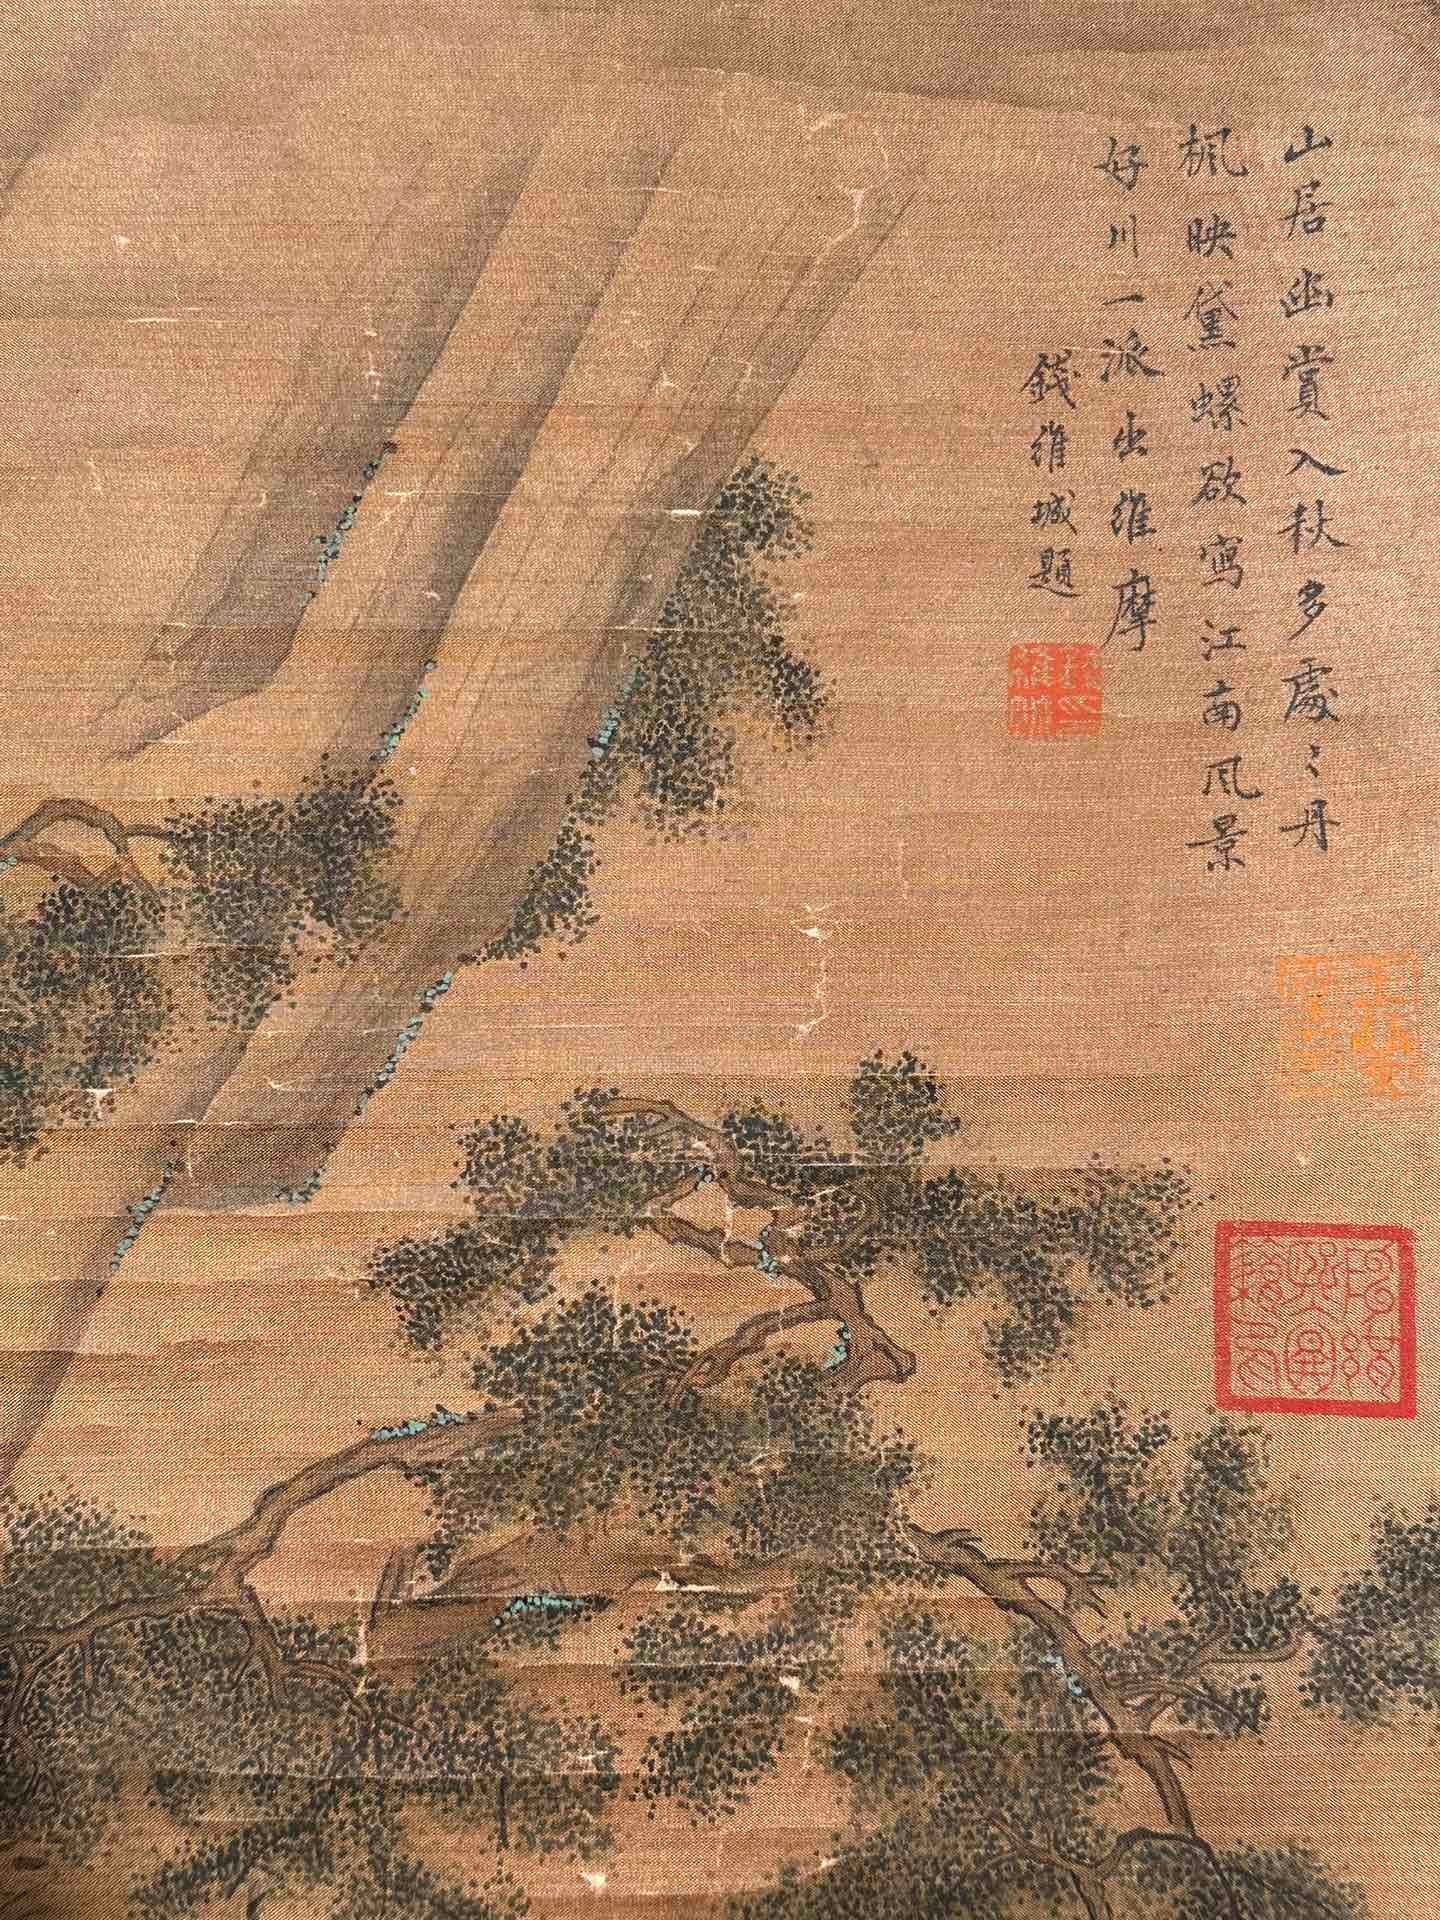 山居幽賞入秋多處〻丹
楓映黛螺欲寫江南風景
好川一派出維摩
錢維城題